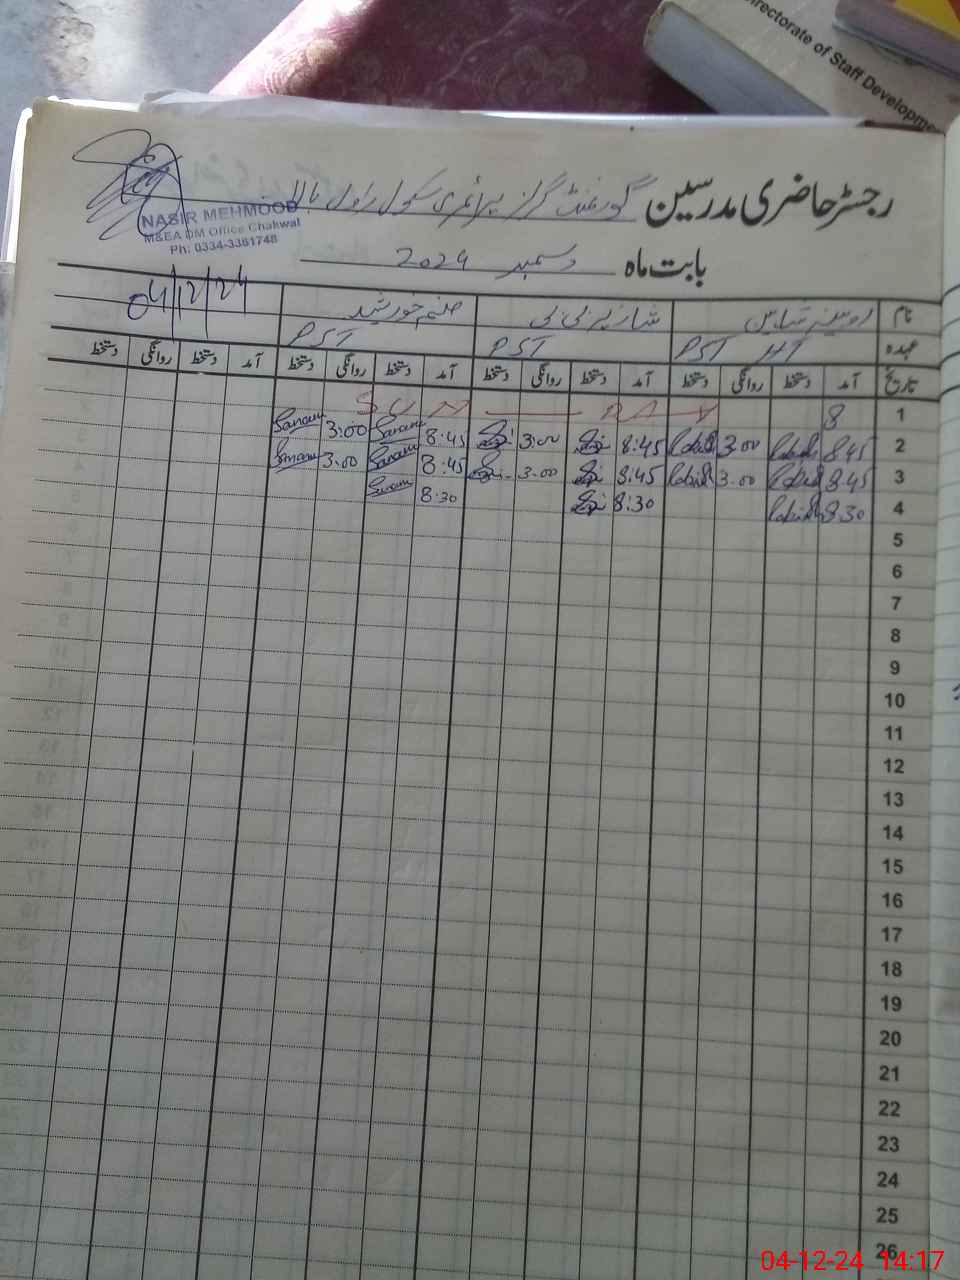 Directorate of Staff Developme
رجسٹر حاضری مدرسین گورنمنٹ گرلز پرائمری سکول
NASIR MEHMOOD
M&EA DM Office Chakwal
Ph: 0334-3381748
بابت ماہ دسمبر 2024
04/12/24
نام شازیہ بی بی صنم خورشید
عہدہ PST HT PST PST
تاریخ آمد دستخط روانگی دستخط آمد دستخط روانگی دستخط آمد دستخط روانگی دستخط آمد دستخط روانگی دستخط
1 8 SUN DAY
2 8:45 3:00 8:45 3:00 8:45 Sanam 3:00 Sanam
3 8:45 3:00 8:45 3:00 8:45 Sanam 3:00 Sanam
4 8:30 8:30 8:30 Sanam
5
6
7
8
9
10
11
12
13
14
15
16
17
18
19
20
21
22
23
24
25
26
04-12-24 14:17